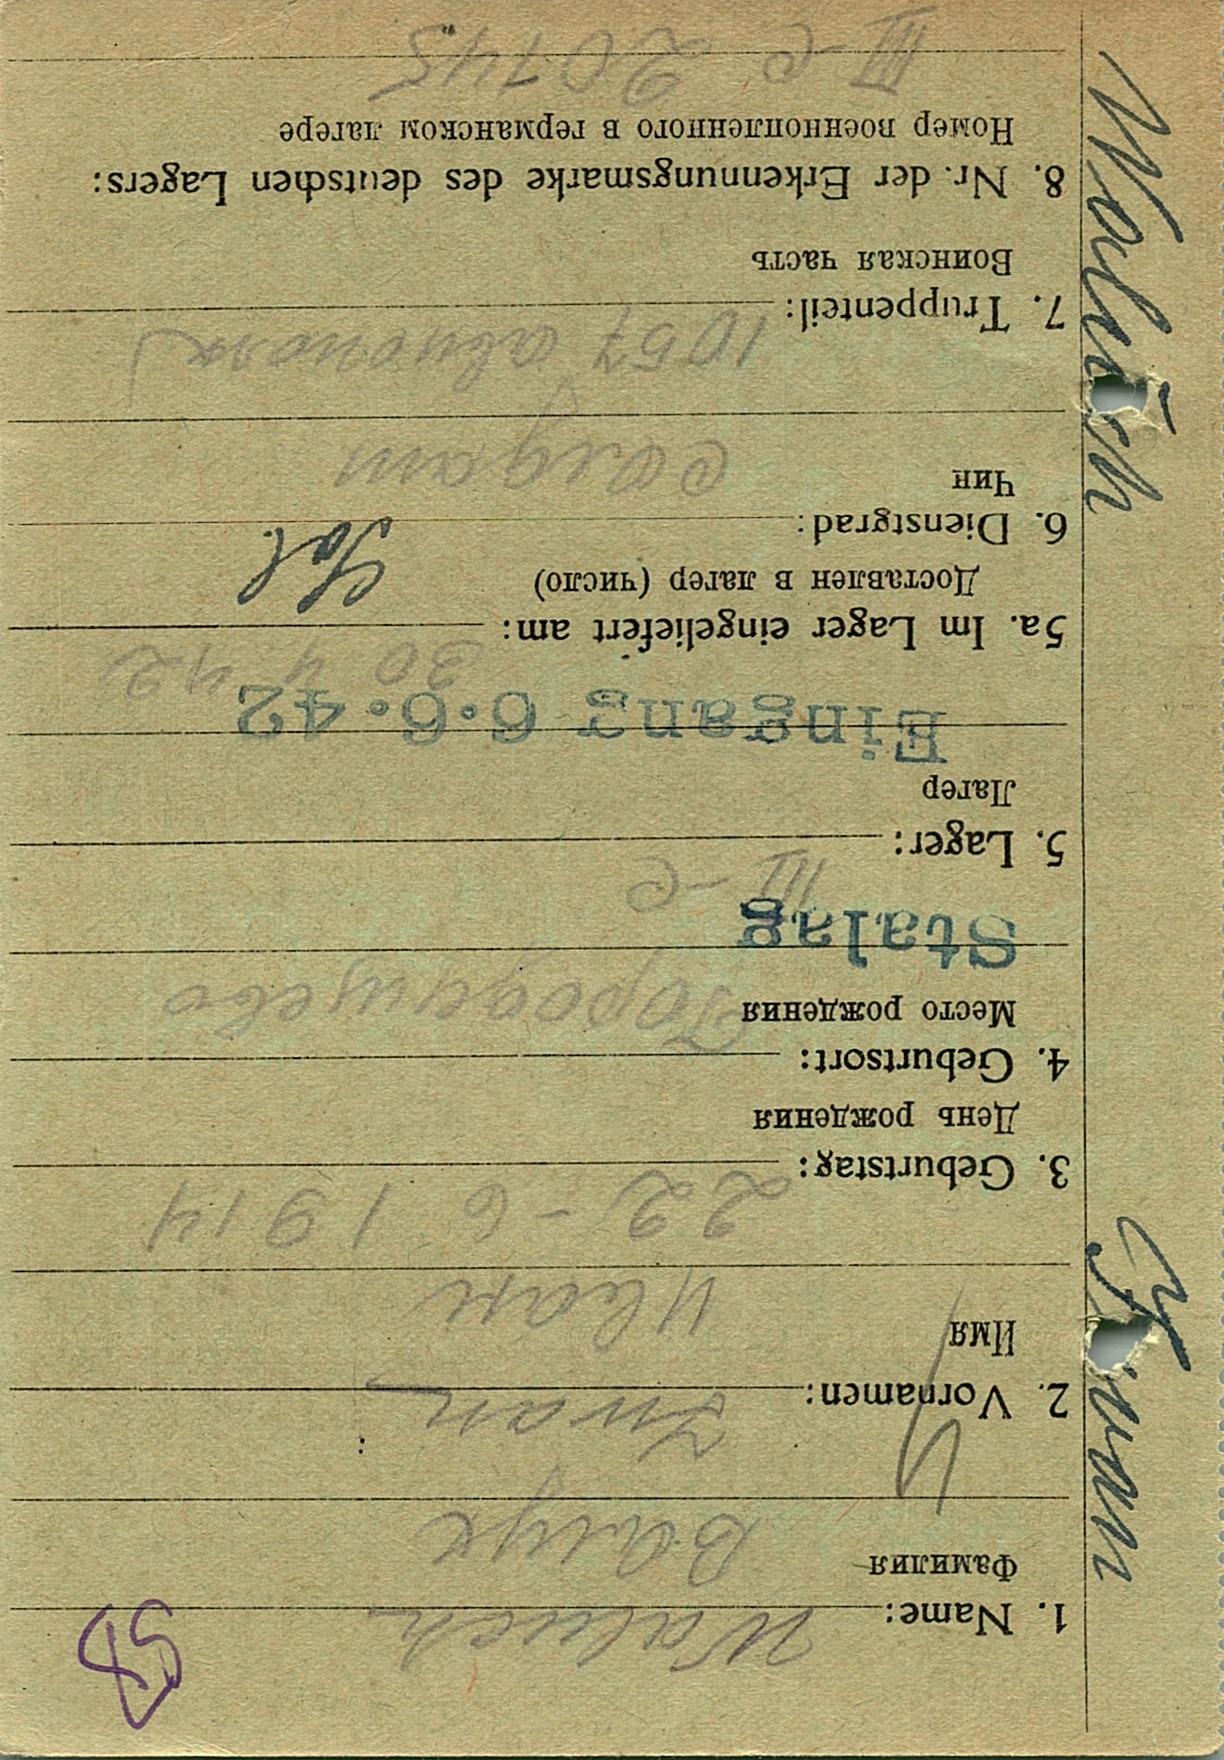 58
1. Name: Waluch
Фамилия Валух
2. Vornamen: Iwan
Имя Иван
3. Geburtstag: 22-6 1914
День рождения
4. Geburtsort:
Место рождения Городищево
Stalag
5. Lager: III-C
Лагер
Eingang 6.6.42
5a. Im Lager eingeliefert am: 30 4 42
Доставлен в лагер (число)
6. Dienstgrad: Sol.
Чин солдат
7. Truppenteil: 1057
Воинская часть
8. Nr. der Erkennungsmarke des deutschen Lagers:
Номер военнопленного в германском лагере
III-C 20745
Iwan